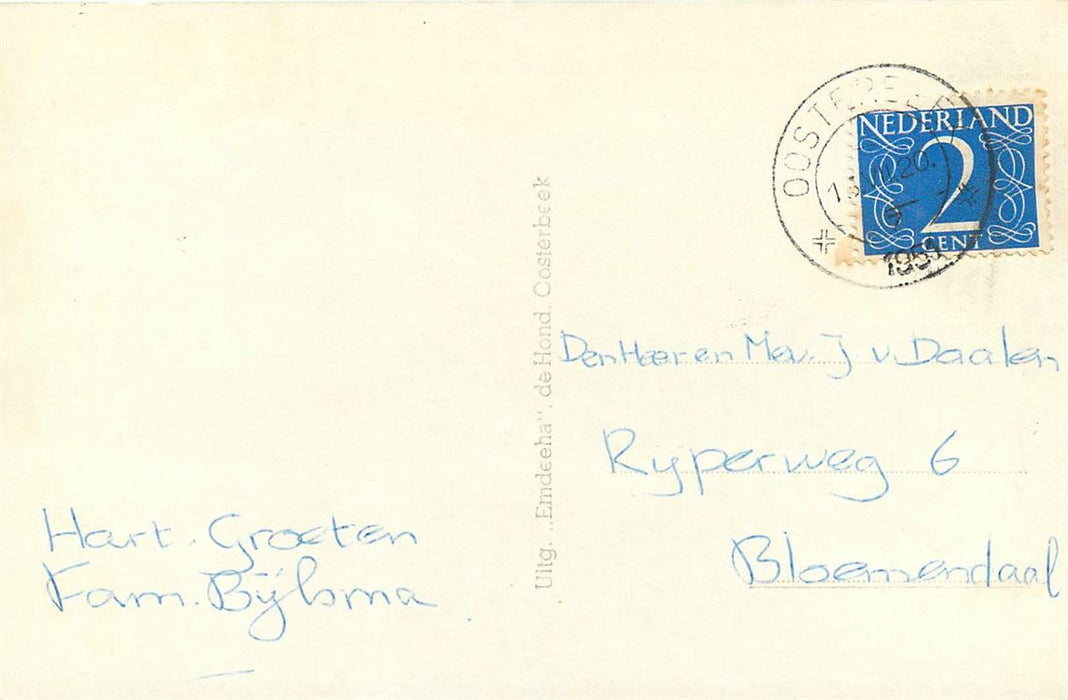 OOSTERBEEK
NEDERLAND
2
CENT
Uitg. „Emdeeha”, de Hond, Oosterbeek
Den Heer en Mev. J v. Daalen
Ryperweg 6
Bloemendaal
Hart. Groeten
Fam. Bijlsma